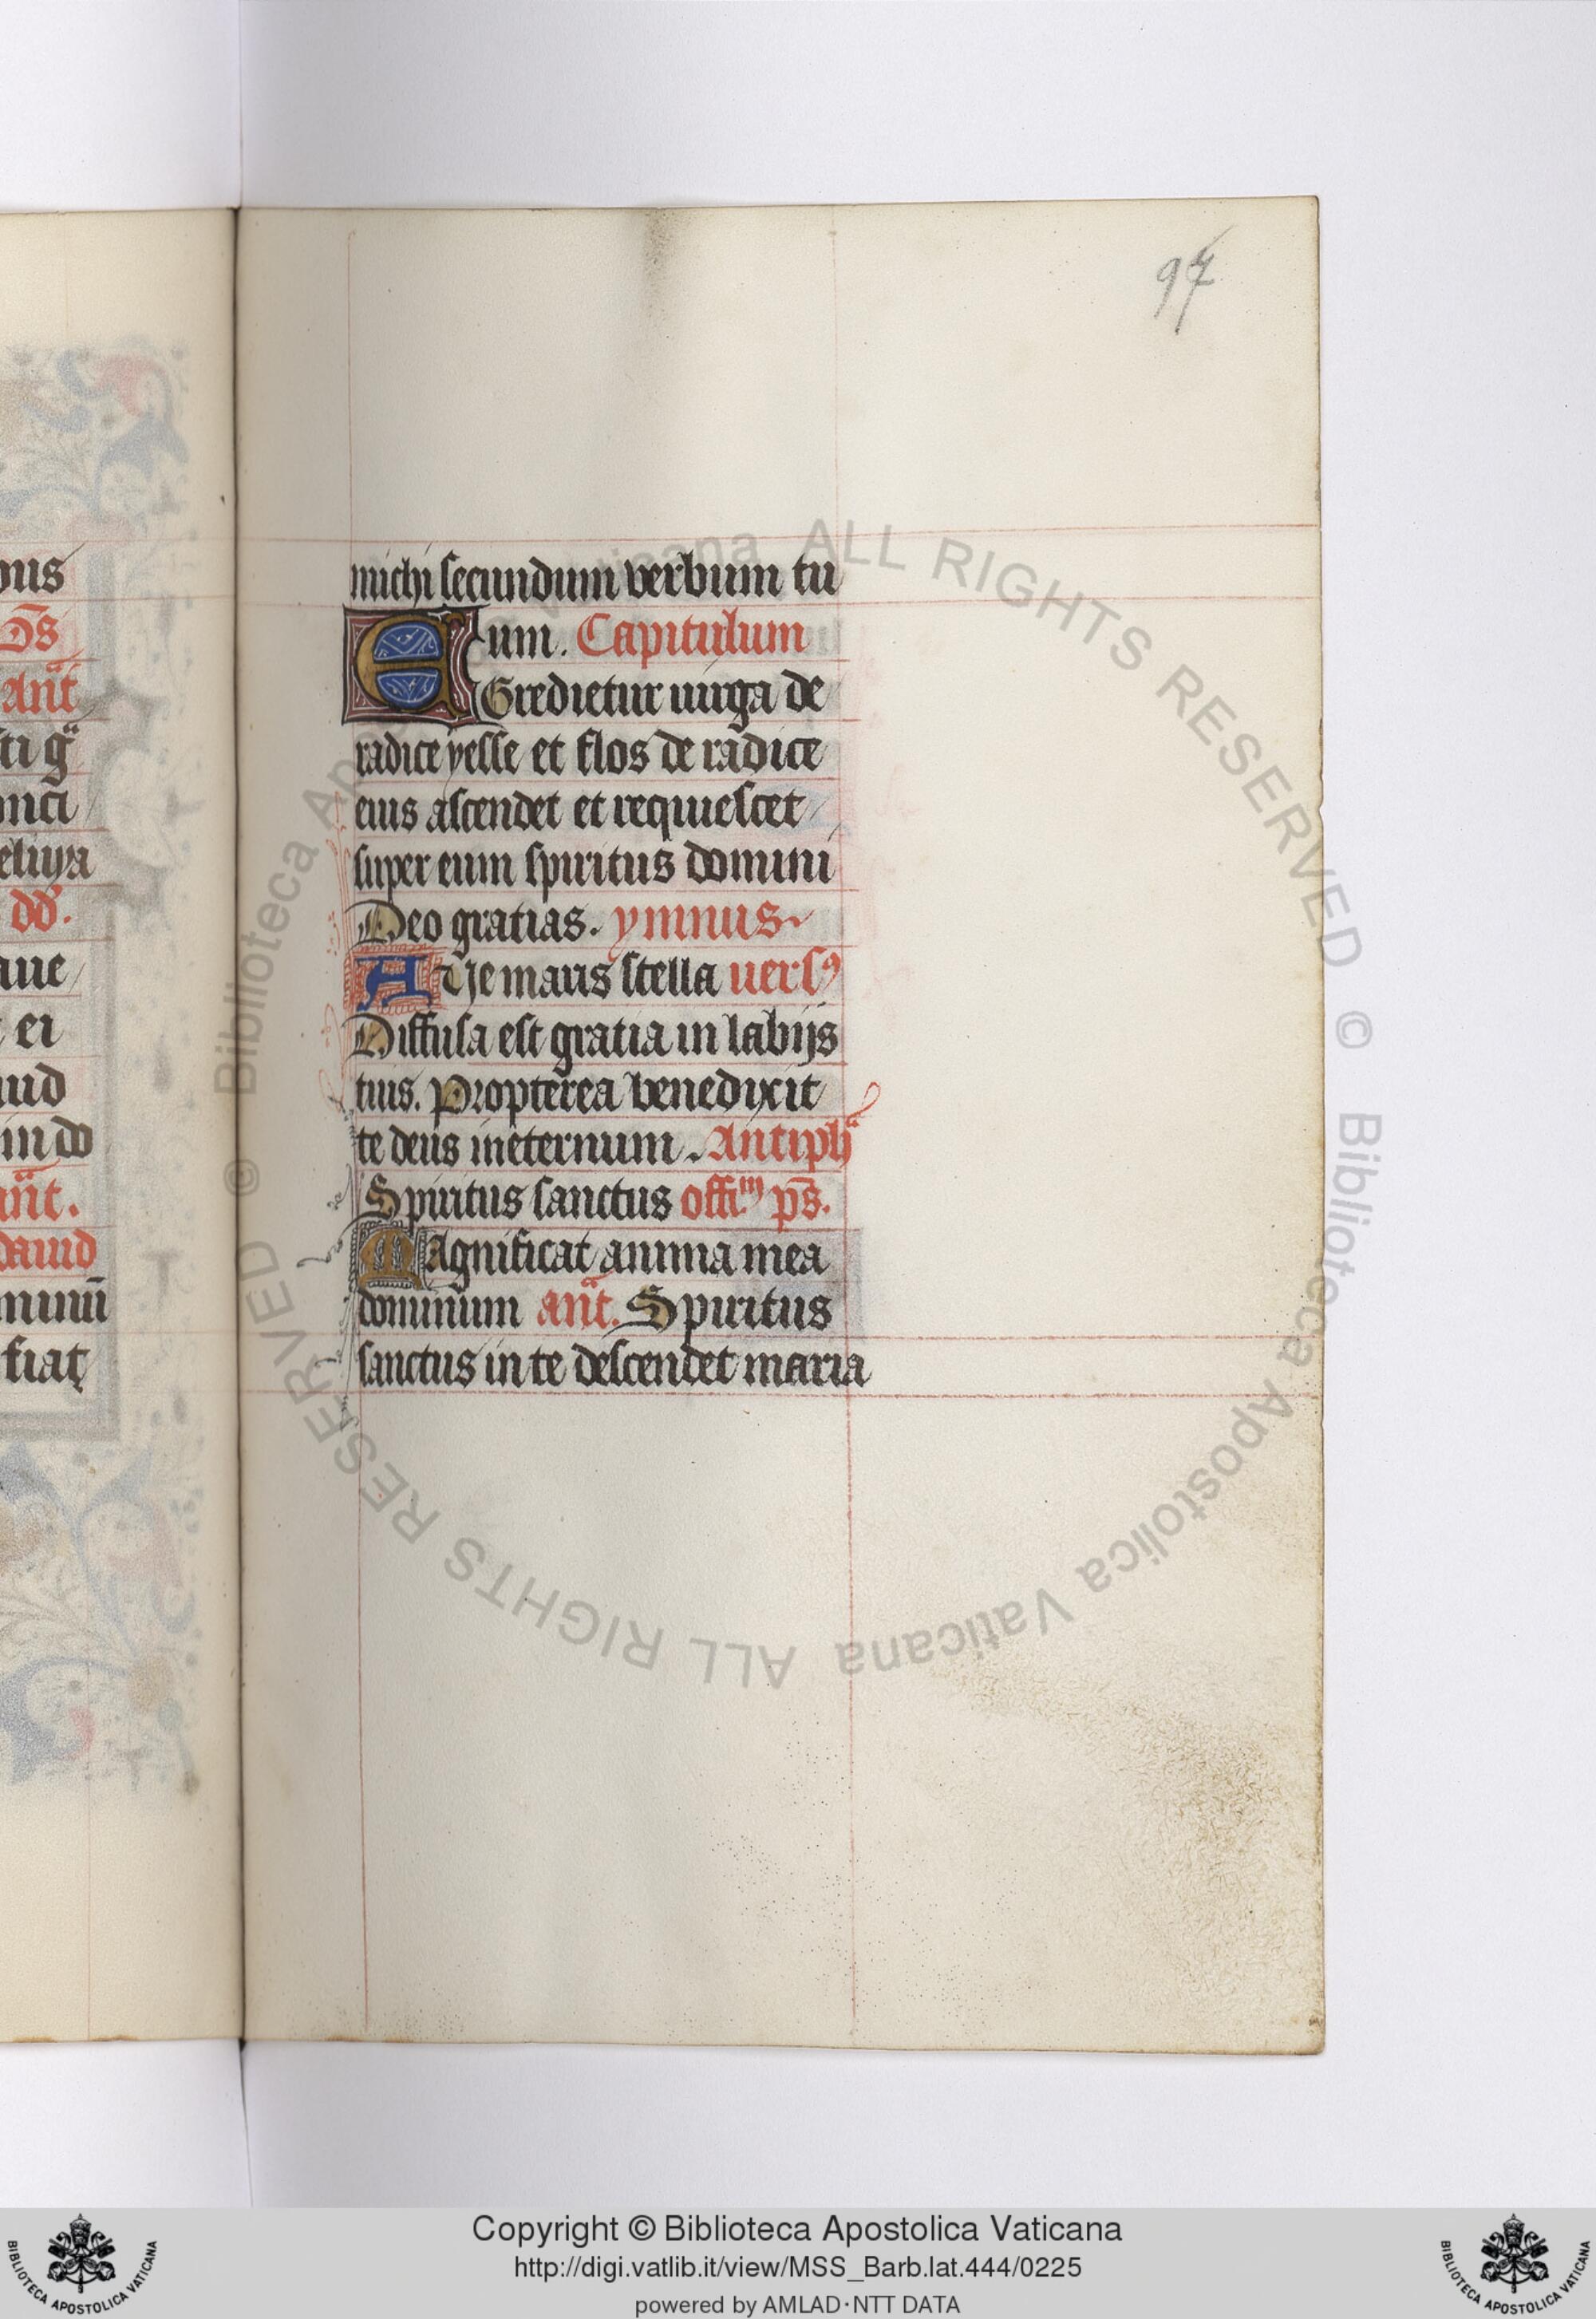 97
michi secundum verbum tu
um. Capitulum
EGredietur uirga de
radice yesse et flos de radice
eius ascendet et requiescet
super eum spiritus domini
Deo gratias. ymnus.
AUe maris stella uersꝰ
Diffusa est gratia in labijs
tuis. Propterea benedixit
te deus ineternum. Antiphᵃ
Spiritus sanctus offiᵐ ps̄.
Magnificat anima mea
dominum anᵃt. Spiritus
sanctus in te descendet maria
ous
Ds̄
Anᵃt
sti gᵃ
onci
eluya
dd.
aue
ei
uid
in do
anᵃt.
dauid
minū
fiat
Biblioteca Apostolica Vaticana ALL RIGHTS RESERVED ©
Biblioteca Apostolica Vaticana ALL RIGHTS RESERVED ©
Copyright © Biblioteca Apostolica Vaticana
http://digi.vatlib.it/view/MSS_Barb.lat.444/0225
powered by AMLAD·NTT DATA
BIBLIOTECA APOSTOLICA VATICANA
BIBLIOTECA APOSTOLICA VATICANA